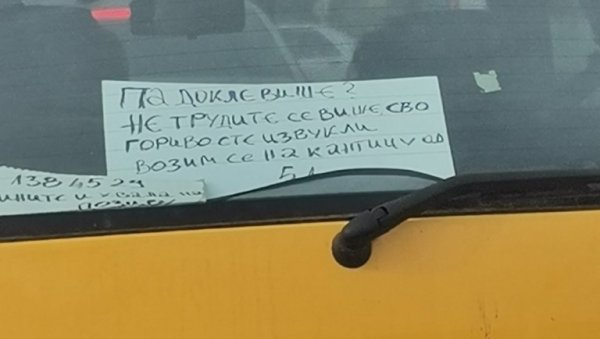 ПА ДОКЛЕ ВИШЕ?
НЕ ТРУДИТЕ СЕ ВИШЕ, СВО
ГОРИВО СТЕ ИЗВУКЛИ
ВОЗИМ СЕ НА КАНТИЦУ ОД
5Л